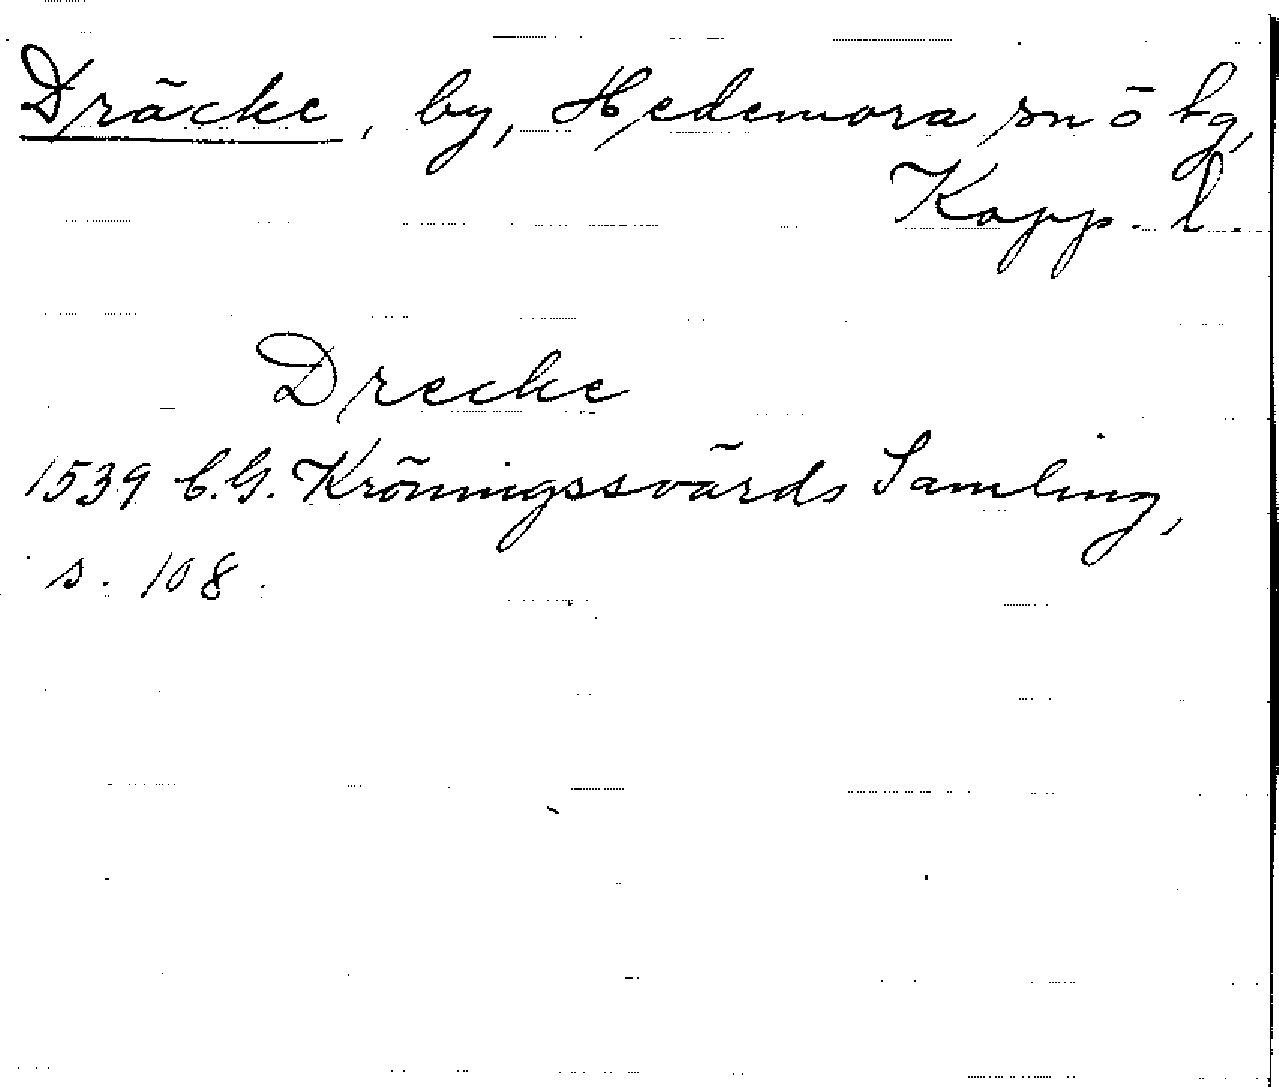 Dräcke, by, Hedemora sn ö tg,
Kopp. l.
Drecke
1539 C.G. Kröningssvärds Samling,
s. 108.